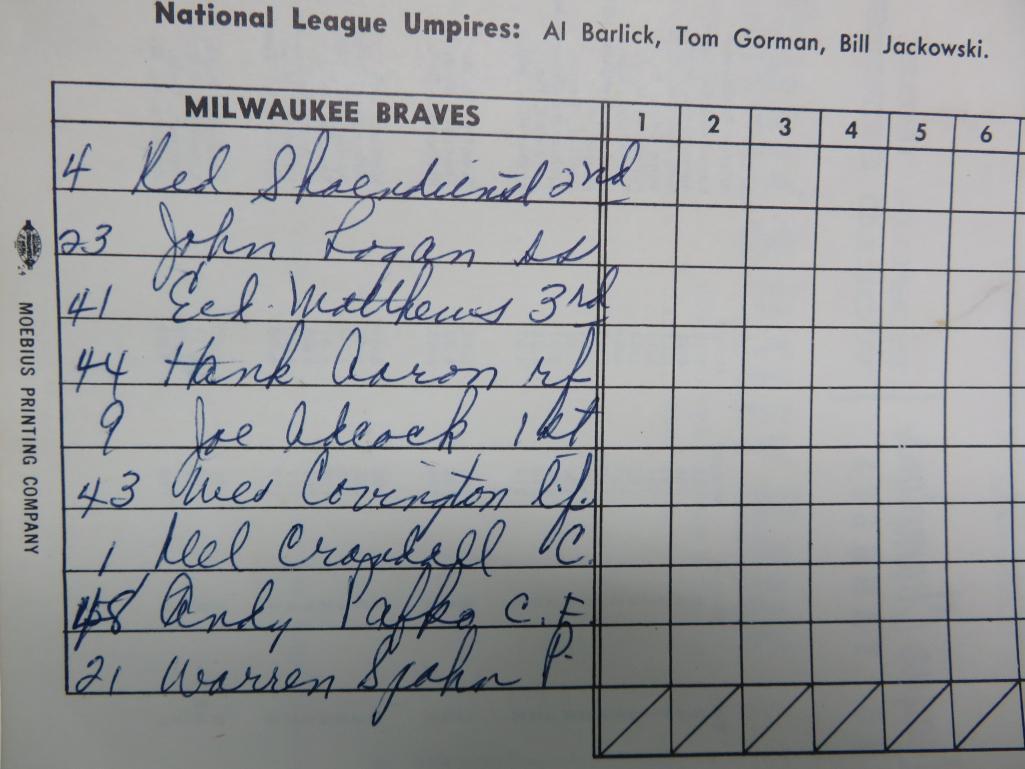 National League Umpires: Al Barlick, Tom Gorman, Bill Jackowski.
MILWAUKEE BRAVES 1 2 3 4 5 6
4 Red Shoendienst 2nd
23 John Logan ss
41 Ed Matthews 3rd
44 Hank Aaron rf
9 Joe Adcock 1st
43 Wes Covington l.f.
1 Del Crandall C.
48 Andy Pafko C.F.
21 Warren Spahn P.
MOEBIUS PRINTING COMPANY